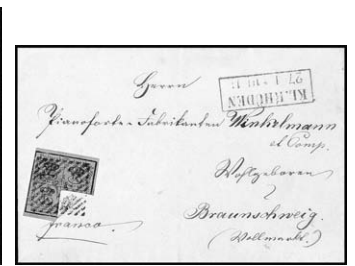 Herrn
KL. RHÜDEN
Pianoforte-Fabrikanten Winkelmann
et Comp.
Wohlgeboren
Braunschweig.
franco.
(Wollmarkt.)